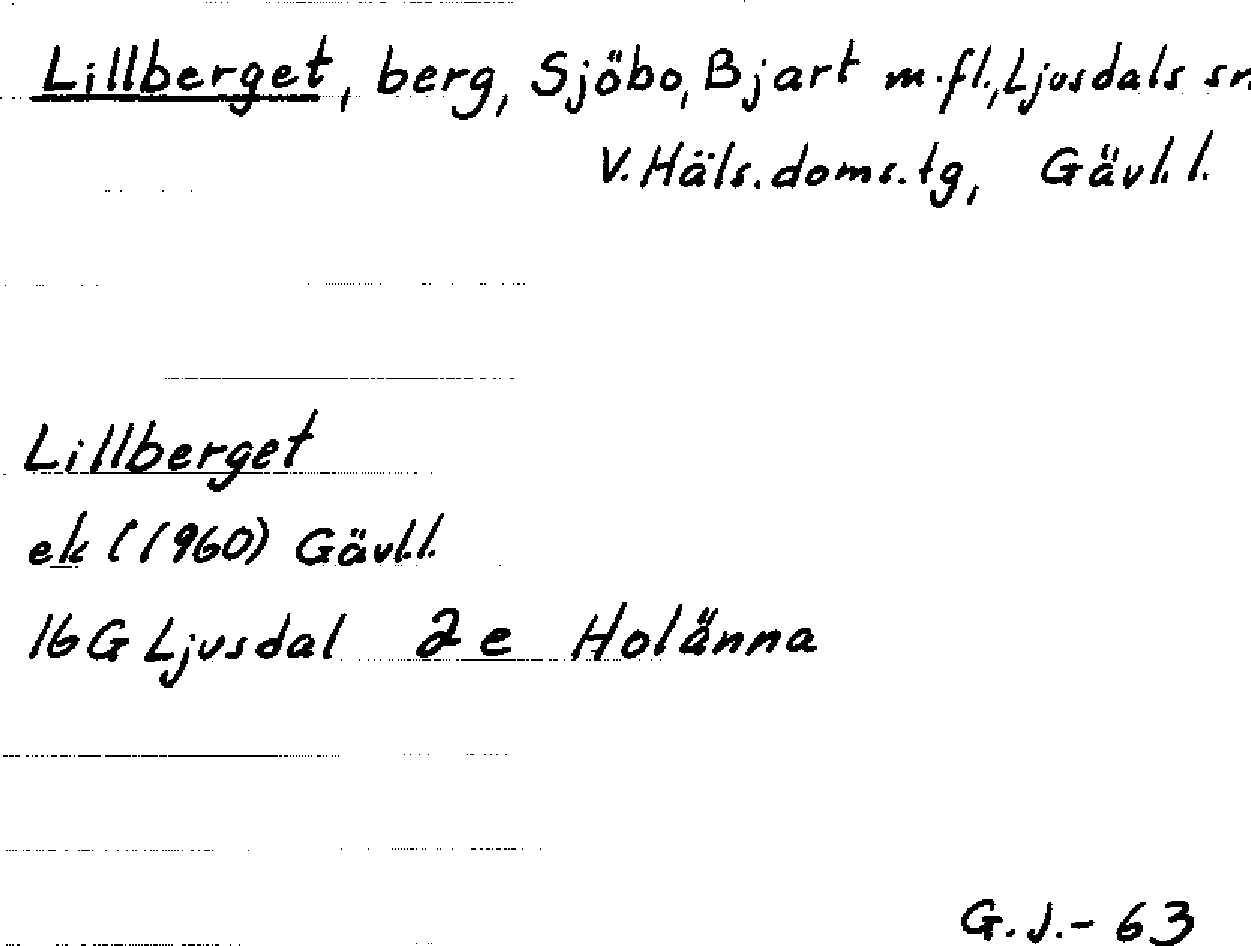 Lillberget, berg, Sjöbo, Bjart m.fl., Ljusdals sn
V. Häls. doms. tg, Gävl. l.
Lillberget
ek (1960) Gävl.l.
16G Ljusdal 2e Holänna
G.J.-63